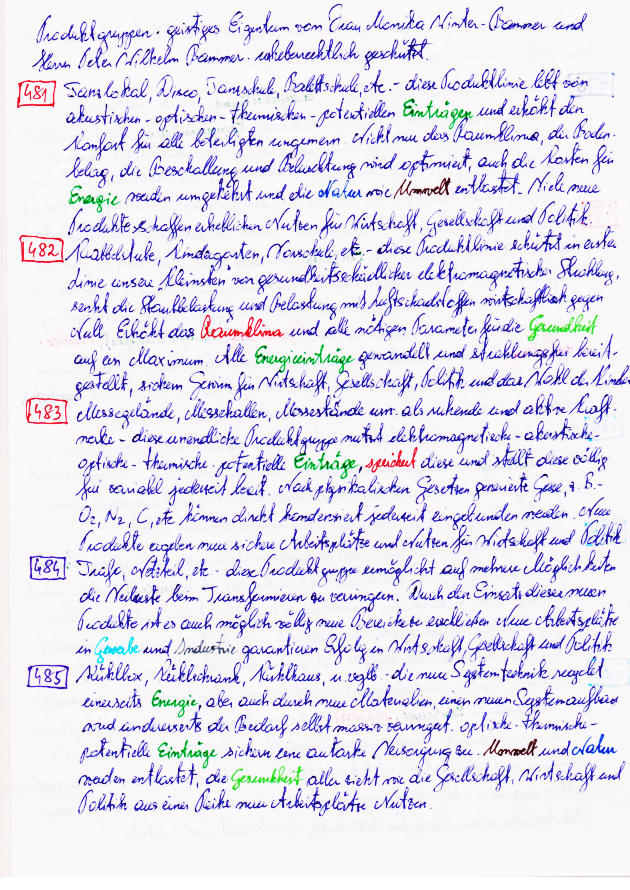 Produktgruppen - geistiges Eigentum von Frau Monika Winter-Bammer und
Herrn Peter Wilhelm Bammer - urheberrechtlich geschützt.
481 Tanzlokal, Disco, Tanzschule, Ballettschule, etc. - diese Produktlinie lebt von
akustischen - optischen - thermischen - potentiellen Einträgen und erhöht den
Komfort für alle beteiligten ungemein. Nicht nur das Raumklima, der Boden-
belag, die Beschallung und Beleuchtung wird optimiert, auch die Kosten für
Energie werden umgekehrt und die Natur wie Umwelt entlastet. Viele neue
Produkte schaffen erheblichen Nutzen für Wirtschaft, Gesellschaft und Politik.
482 Krabbelstube, Kindergarten, Vorschule, etc. - diese Produktlinie schützt in erster
Linie unsere Kleinsten von gesundheitsschädlicher elektromagnetischer Strahlung,
senkt die Staubbelastung und Belastung mit Luftschadstoffen wirtschaftlich gegen
Null. Erhöht das Raumklima und alle nötigen Parameter für die Gesundheit
auf ein Maximum. Alle Energieeinträge gewandelt und strahlungsfrei bereit-
gestellt, sichern Gewinn für Wirtschaft, Gesellschaft, Politik und das Wohl der Kinder
483 Messegelände, Messehallen, Messestände usw. als ruhende und aktive Kraft-
werke - diese unendliche Produktgruppe nutzt elektromagnetische - akustische -
optische - thermische - potentielle Einträge, speichert diese und stellt diese völlig
frei variabel jederzeit bereit. Nach physikalischen Gesetzen generierte Gase, z. B. -
O2, N2, C, etc können direkt kondensiert jederzeit eingebunden werden. Neue
Produkte ergeben neue sichere Arbeitsplätze und Nutzen für Wirtschaft und Politik
484 Trafo, Netzteil, etc - diese Produktgruppe ermöglicht auf mehrere Möglichkeiten
die Verluste beim Transformieren zu verringern. Durch den Einsatz dieser neuen
Produkte ist es auch möglich völlig neue Bereiche zu erschließen. Neue Arbeitsplätze
in Gewerbe und Industrie garantieren Erfolg in Wirtschaft, Gesellschaft und Politik
485 Kühlbox, Kühlschrank, Kühlhaus, u. vglb. - die neue Systemtechnik recycelt
einerseits Energie, aber auch durch neue Materialien, einen neuen Systemaufbau
wird andererseits der Bedarf selbst massiv verringert. optische - thermische -
potentielle Einträge sichern eine autarke Versorgung zu. Umwelt und Natur
werden entlastet, die Gesundheit aller sieht wie die Gesellschaft, Wirtschaft und
Politik aus einer Reihe neuer Arbeitsplätze Nutzen.